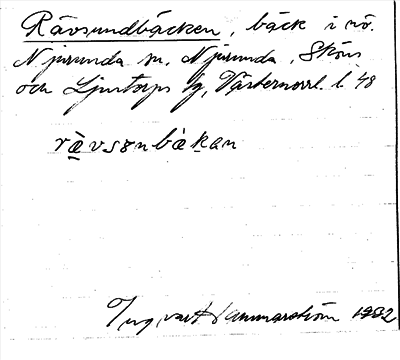 Rävsundbäcken, bäck i nö.
Njurunda sn, Njurunda, Sköns
och Ljustorps tg, Västernorrl. l. 48
rä̀vsɵnbàkan
Ingvart Hammarström 1932